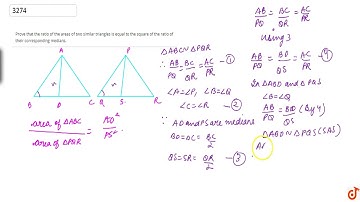 3274
Prove that the ratio of the areas of two similar triangles is equal to the square of the ratio of
their corresponding medians.
A
P
B D C Q S R
area of △ABC / area of △PQR = AD² / PS²
△ABC ~ △PQR
∴ AB/PQ = BC/QR = AC/PR - ①
∠A = ∠P, ∠B = ∠Q
∠C = ∠R - ②
∵ AD and PS are medians
BD = DC = BC/2
QS = SR = QR/2 - ③
AB/PQ = BC/QR = AC/PR
Using 3
AB/PQ = BD/QS = AC/PR - ④
In △ABD and △PQS
∠B = ∠Q
AB/PQ = BD/QS (By 4)
△ABD ~ △PQS (SAS)